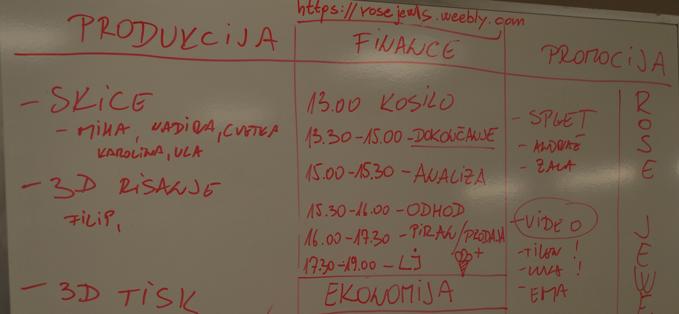 https://rosejewls.weebly.com
PRODUKCIJA
- SKICE
- MIHA, NADINA, CVETKA
KAROLINA, ULA
- 3D RISANJE
FILIP,
- 3D TISK
FINANCE
13.00 KOSILO
13.30-15.00-DOKONČANJE
15.00-15.30-ANALIZA
15.30-16.00-ODHOD
16.00-17.30-PIRAN/PRODAJA
17.30-19.00-LJ
EKONOMIJA
PROMOCIJA
- SPLET
- ANDRAŽ
- ZALA
- VIDEO
- TILEN!
- EMA
R
O
S
E
J
E
W
E